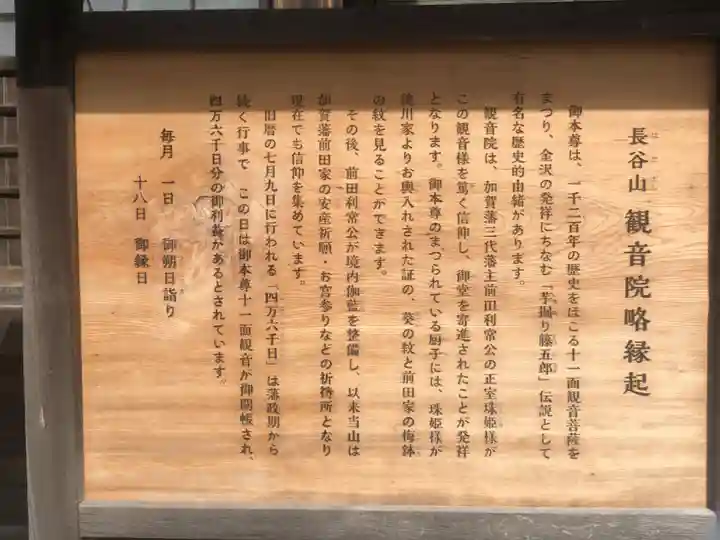 長谷山 観音院略縁起
御本尊は、一千二百年の歴史をほこる十一面観音菩薩を
まつり、金沢の発祥にちなむ「芋掘り藤五郎」伝説として
有名な歴史的由緒があります。
観音院は、加賀藩三代藩主前田利常公の正室珠姫様が
この観音様を篤く信仰し、御堂を寄進されたことが発祥
となります。御本尊のまつられている厨子には、珠姫様が
徳川家よりお輿入れされた証の、葵の紋と前田家の梅鉢
の紋を見ることができます。
その後、前田利常公が境内伽藍を整備し、以来当山は
加賀藩前田家の安産祈願・お宮参りなどの祈祷所となり
現在でも信仰を集めています。
旧暦の七月九日に行われる「四万六千日」は藩政期から
続く行事で この日は御本尊十一面観音が御開帳され、
四万六千日分の御利益があるとされています。
毎月 一日 御朔日詣り
十八日 御縁日